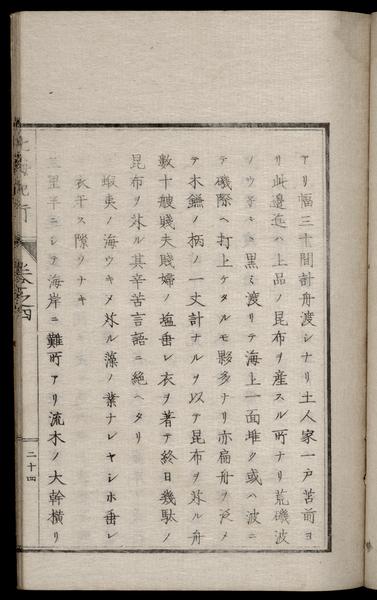 アリ幅三十間計舟渡シナリ土人家一戸苫前ヨ
リ此邊迄ハ上品ノ昆布ヲ産スル所ナリ荒磯波
黒ミ渡リテ海上一面堆ク或ハ波ニ
テ磯際ヘ打上ケタルモ夥多ナリ亦扁舟ヲ泛メ
テ木鎌ノ柄ノ一丈計ナルヲ以テ昆布ヲ采ル舟
數十艘賤夫賤婦ノ塩垂レ衣ヲ著テ終日幾駄ノ
昆布ヲ采ル其辛苦言語ニ絶ヘタリ
蝦夷ノ海ウキメ采ル藻ノ業ナレヤシホ垂レ
衣干ス隙ソナキ
三里半ニシテ海岸ニ難所アリ流木ノ大幹横リ
北海紀行
巻之四
二十四